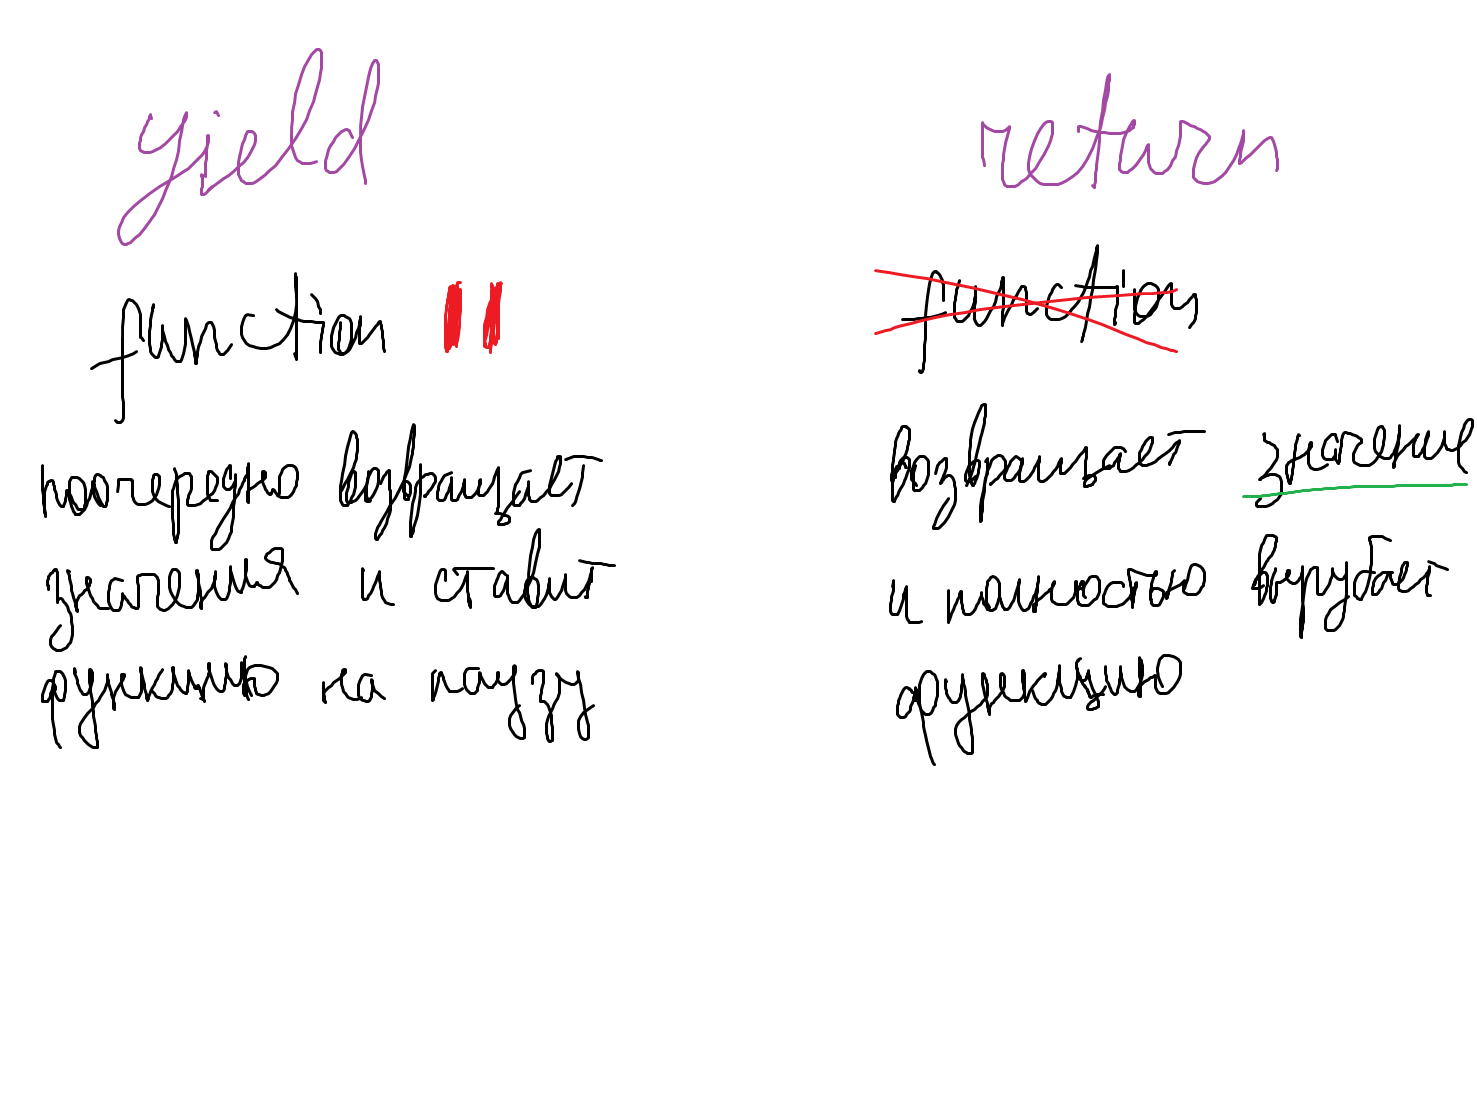 yield
function
поочередно возвращает
значения и ставит
функцию на паузу
return
function
возвращает значение
и полностью вырубает
функцию